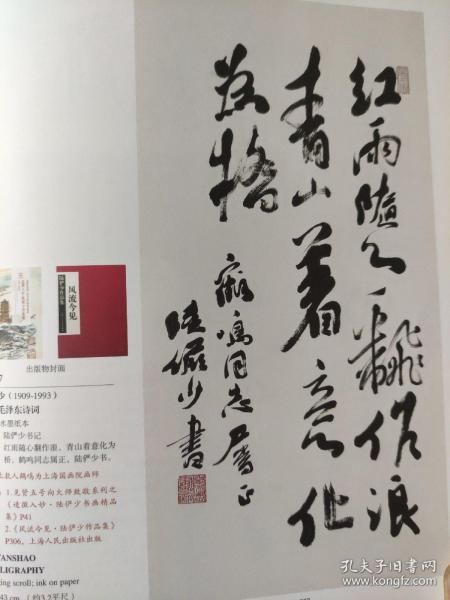 红雨随心翻作浪
青山着意化
为桥
鹤鸣同志属正
陆俨少书
风流今见
出版物封面
少（1909-1993）
毛泽东诗词
水墨纸本
陆俨少书记
红雨随心翻作浪，青山着意化为
桥，鹤鸣同志属正，陆俨少书。
上款人鹤鸣为上海国画院画师
1.见贤五号向大师致敬系列之
《造微入妙·陆俨少书画精品
集》P41
2.《风流今见·陆俨少作品集》
P306，上海人民出版社出版
YANSHAO
LIGRAPHY
ging scroll; ink on paper
43 cm （约3.2平尺）
孔夫子旧书网